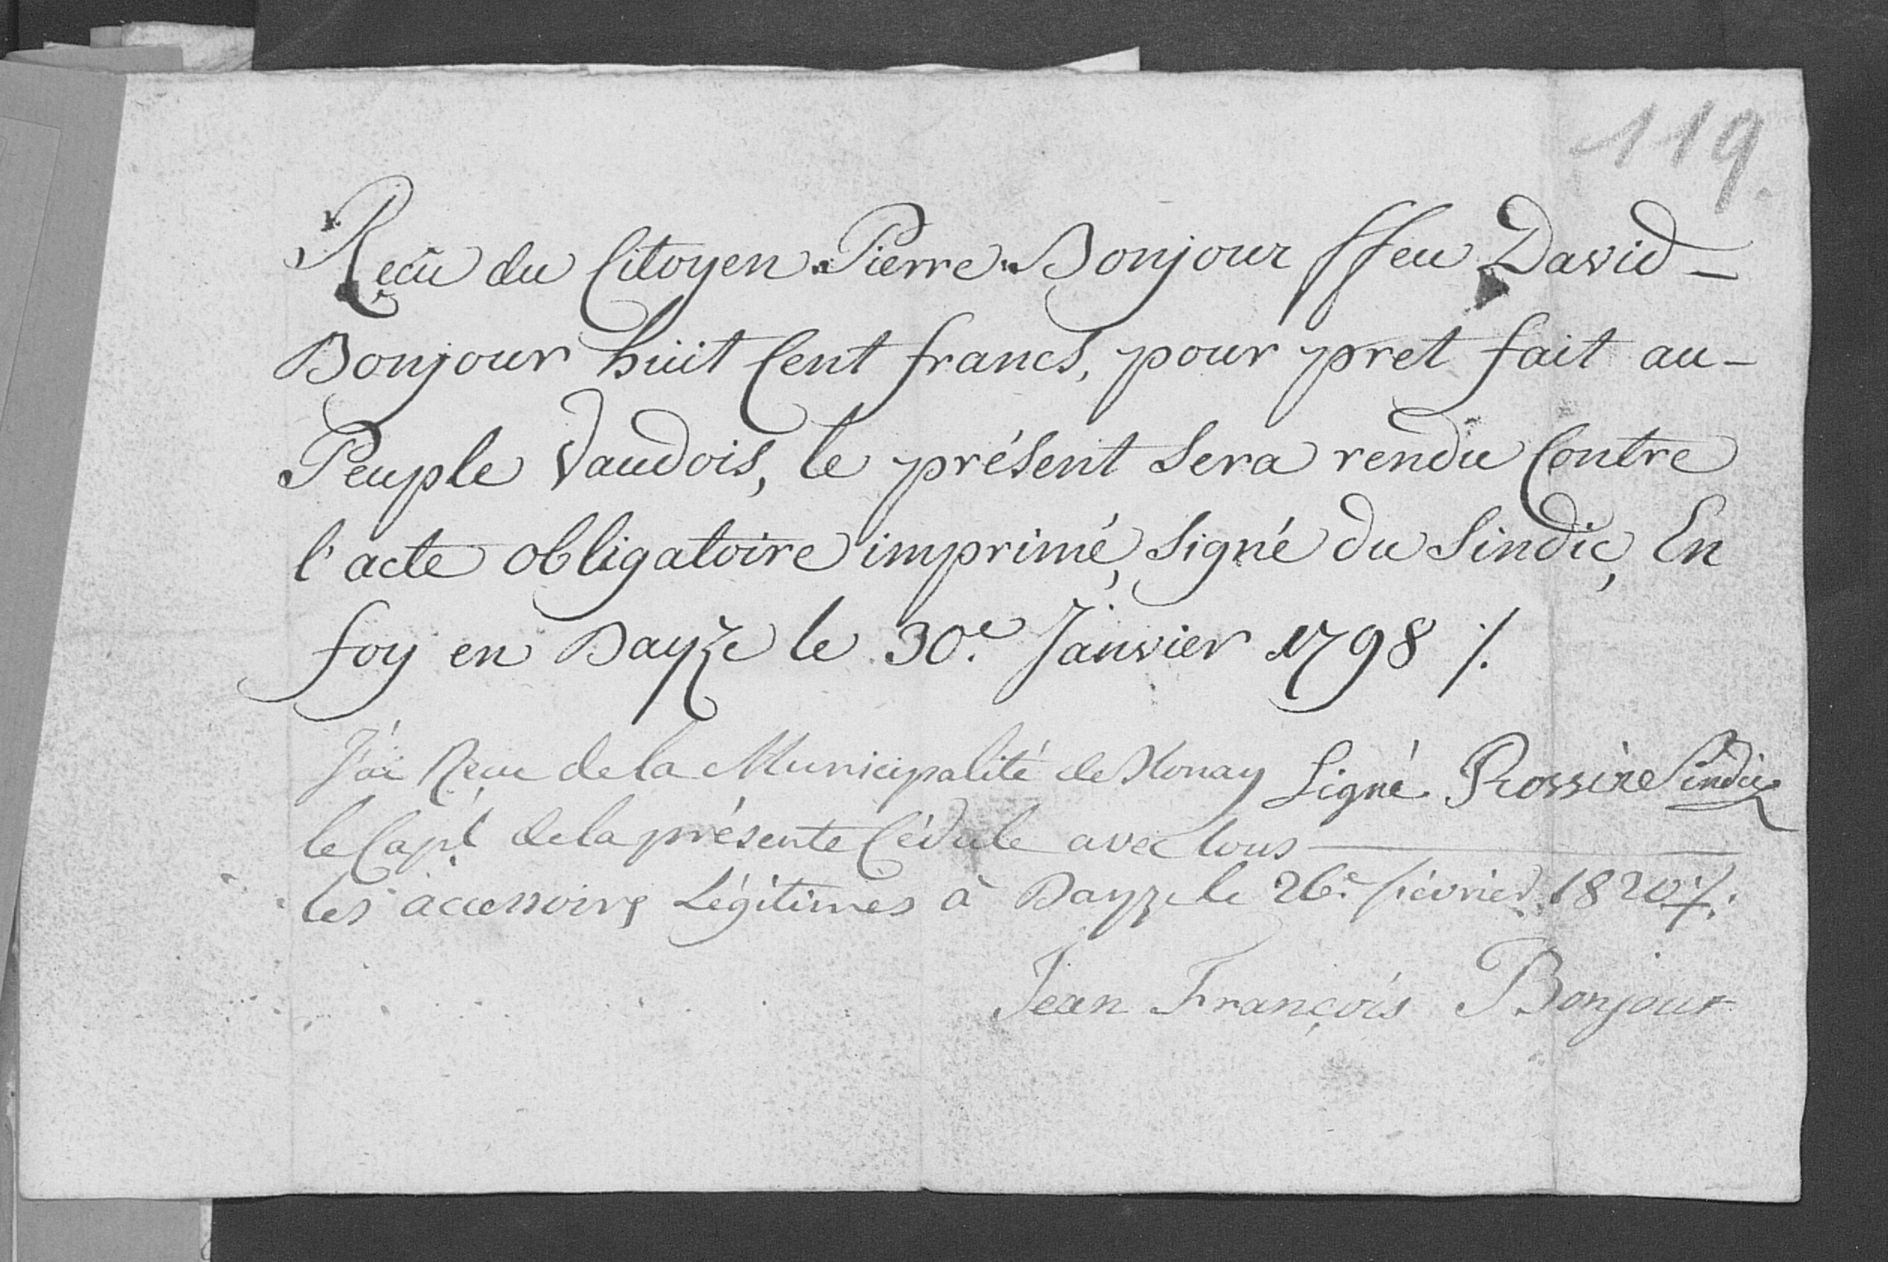 119.
Reçu du Citoyen Pierre Bonjour ffeu David-
Bonjour huit Cent francs, pour pret fait au-
Peuple Vaudois, le présent sera rendu Contre
l'acte obligatoire imprimé, signé du Sindic, En
foy en Dayze le 30.e Janvier 1798 ./.
Signé Rossire Sindic
J'ai Reçu de la Municipalité de Blonay
le Cap.l de la présente Cédule avec tous
les accessoires Légitimes à Dayze le 26.e février 1820 ./.
Jean François Bonjour